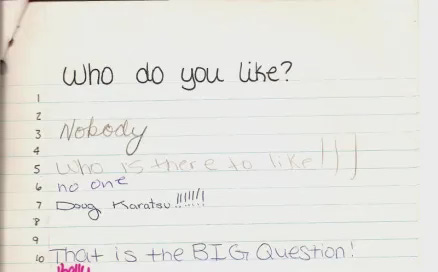 Who do you like?
1
2
3 Nobody
4
5 Who is there to like!!!
6 no one
7 Doug Karatsu!!!!!!
8
9
10 That is the BIG Question!